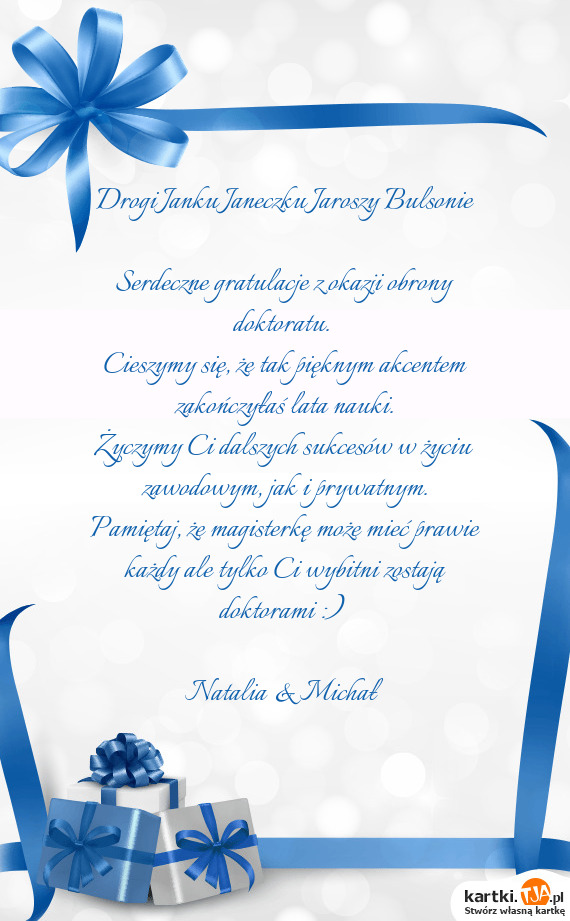 Drogi Janku Janeczku Jaroszy Bulsonie
Serdeczne gratulacje z okazji obrony
doktoratu.
Cieszymy się, że tak pięknym akcentem
zakończyłaś lata nauki.
Życzymy Ci dalszych sukcesów w życiu
zawodowym, jak i prywatnym.
Pamiętaj, że magisterkę może mieć prawie
każdy ale tylko Ci wybitni zostają
doktorami :)
Natalia & Michał
kartki.TJA.pl
Stwórz własną kartkę